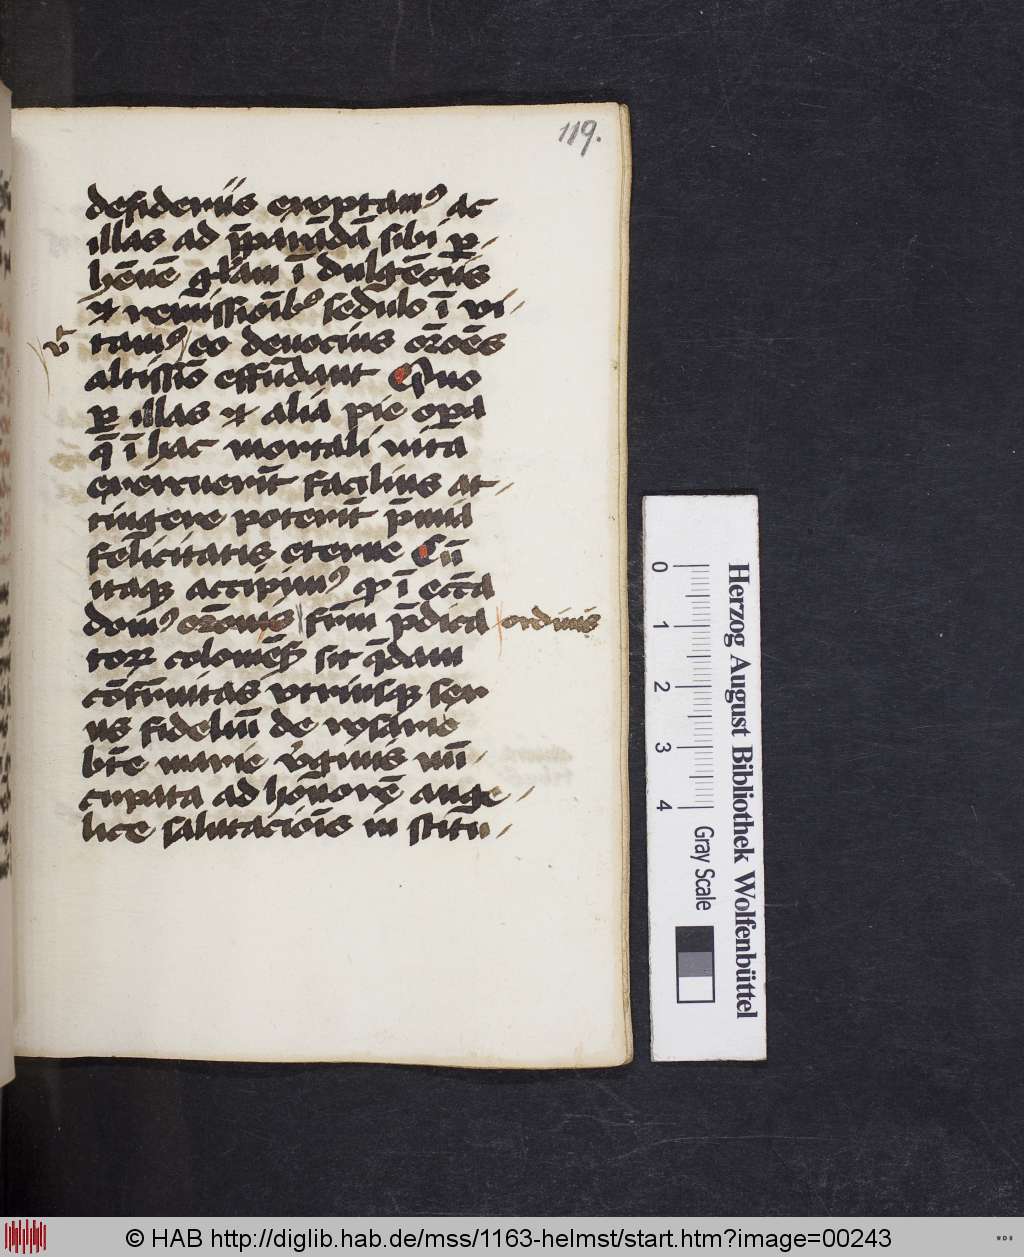 119.
desiderijs exoptam᷒ ac
illas ad p̄parādā sibi ꝑ-
hēnē gl̄am ī dulgēcijs
⁊ remissioīb᷒ sedulo ī vi-
tam᷒ eo deuocius or̄oēs
altissīo effūdant Quo
ꝑ illas ⁊ alia pie oꝑa
q̄ ī hac mortali uita
exercuerīt facilius at-
tingere poterīt p̄mia
felicitatis eterne Cū
itaqꝫ accepim᷒ ꝙ ī ecc̄a
dom᷒ fr̄m p̄dica ordinis
toꝝ colonieēn̄ sit q̄dam
cōfr̄nitas vtriusqꝫ sex
us fideliū de rosario
bt̄e marie v̄ginis nū-
cupata ad honorē ange-
lice salutacionīs in stitu-
Herzog August Bibliothek Wolfenbüttel
0 1 2 3 4
Gray Scale
© HAB http://diglib.hab.de/mss/1163-helmst/start.htm?image=00243